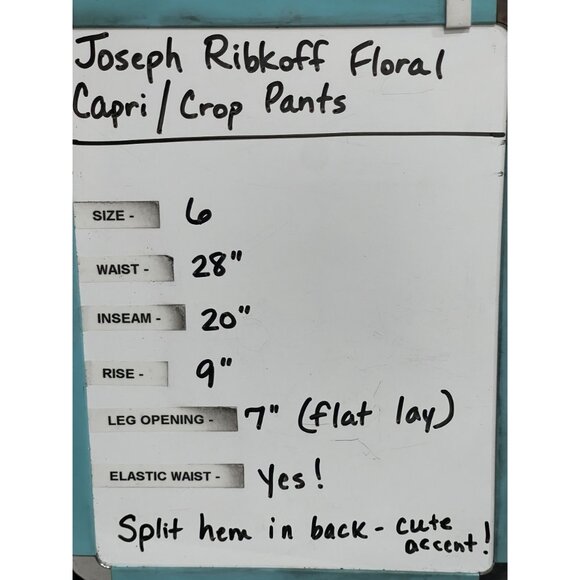 Joseph Ribkoff Floral
Capri / Crop Pants
SIZE - 6
WAIST - 28"
INSEAM - 20"
RISE - 9"
LEG OPENING - 7" (flat lay)
ELASTIC WAIST - Yes!
Split hem in back - cute
accent!